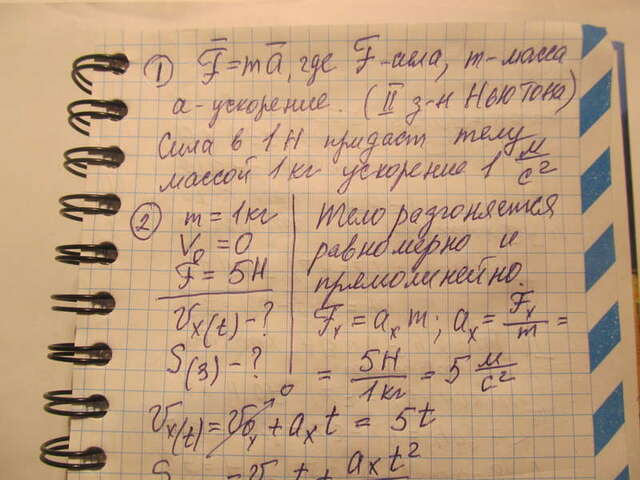 ① F̅ = ma̅, где F̅-сила, m-масса
a-ускорение. (II з-н Ньютона)
Сила в 1Н придаст телу
массой 1кг ускорение 1 м/с²
② m = 1кг
V₀ = 0
F = 5Н
Vx(t) - ?
S(3) - ?
Тело разгоняется
равномерно и
прямолинейно.
Fx = ax m; ax = Fx/m =
= 5Н/1кг = 5 м/с²
Vx(t) = V0x⁰ + axt = 5t
axt²